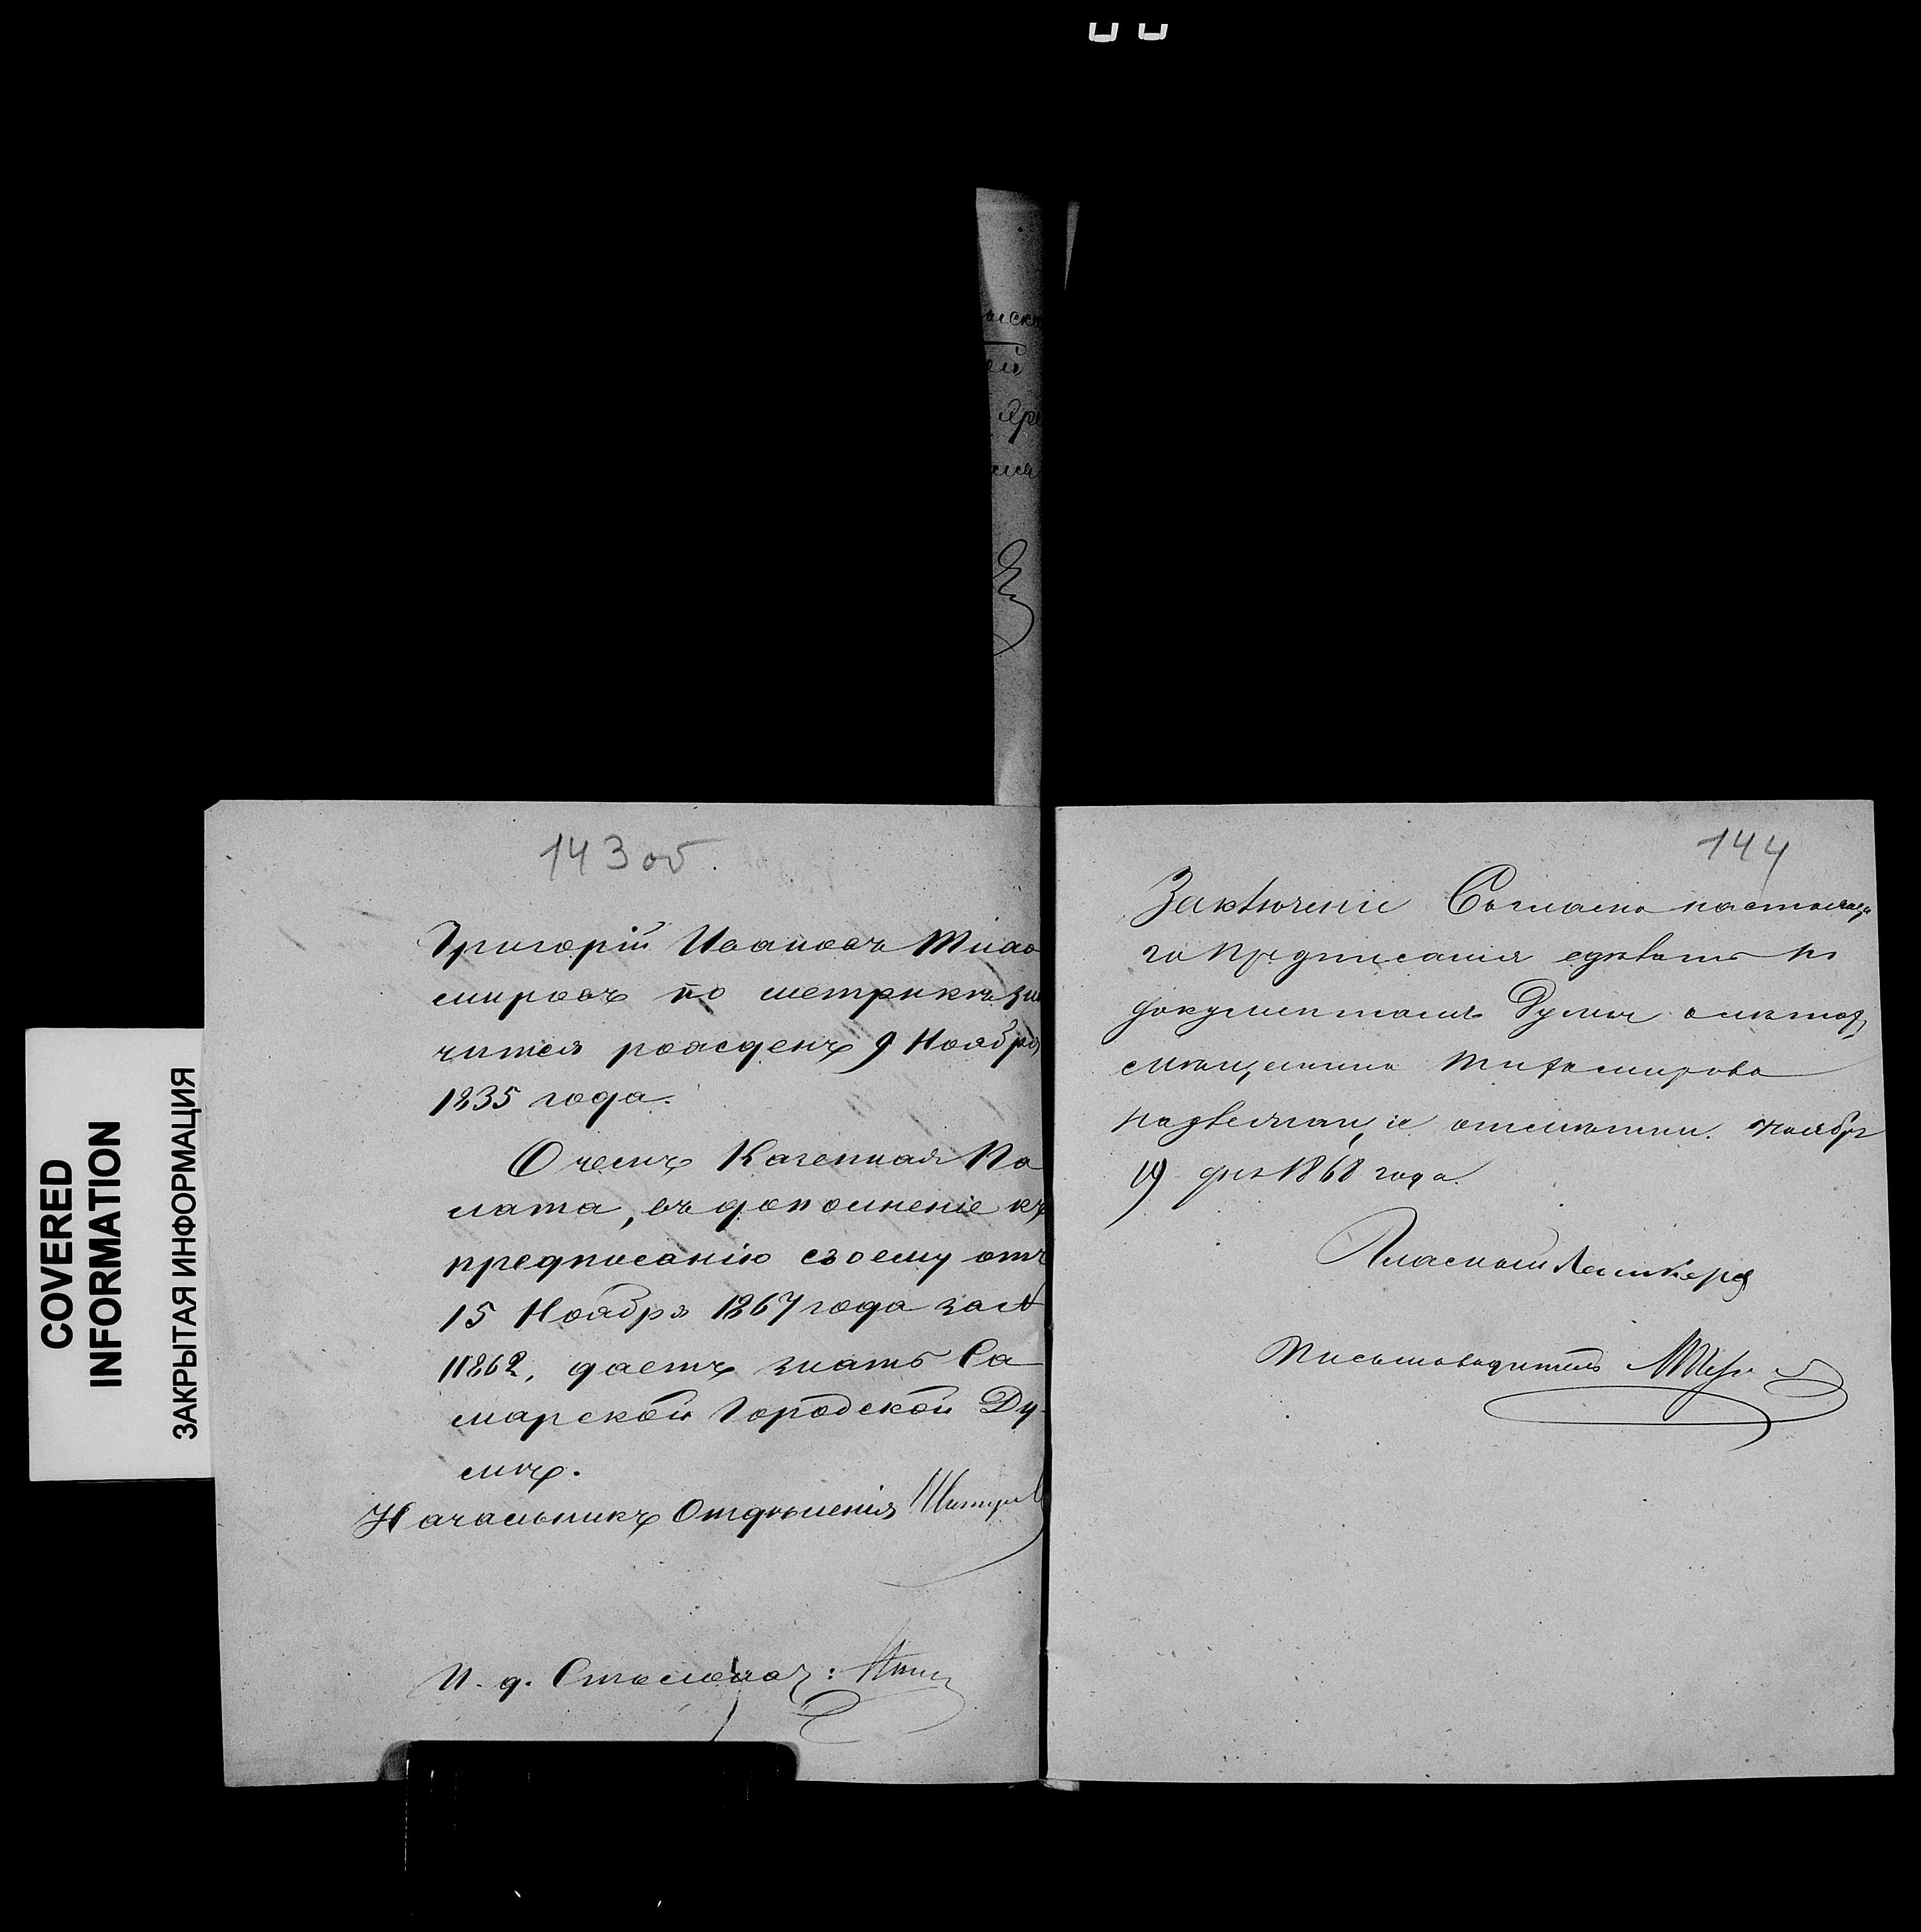 COVERED
INFORMATION
ЗАКРЫТАЯ ИНФОРМАЦИЯ
143 об.
Григорій Ивановъ Тихо
мировъ по метрикѣ зна
чится рожденъ 9 Ноября
1835 года.
О чемъ Казенная Па
лата, въ дополненіе къ
предписанію своему отъ
15 Ноября 1867 года за №
11862, даетъ знать Са
марской Городской Ду-
мѣ.
Начальникъ Отдѣленія
И. д. Столонач:
144
Заключеніе Согласно настояща
го предписанія сдѣлать по
документамъ Думы о лѣтахъ
мѣщанина Тихомирова
надлежащіе отмѣтки. Ноября
19 дня 1868 года.
Гласный
Письмоводитель